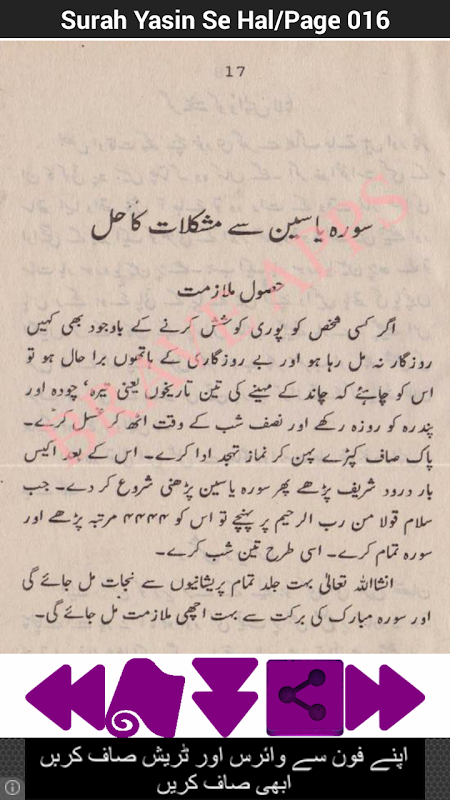 Surah Yasin Se Hal/Page 016
17
سورہ یاسین سے مشکلات کا حل
حصول ملازمت
اگر کسی شخص کو پوری کوشش کرنے کے باوجود بھی کہیں
روزگار نہ مل رہا ہو اور بے روزگاری کے ہاتھوں برا حال ہو تو
اس کو چاہئے کہ چاند کے مہینے کی تین تاریخوں یعنی تیرہ‘ چودہ اور
پندرہ کو روزہ رکھے اور نصف شب کے وقت اٹھ کر غسل کرے۔
پاک صاف کپڑے پہن کر نماز تہجد ادا کرے۔ اس کے بعد اکیس
بار درود شریف پڑھے پھر سورہ یاسین پڑھنی شروع کر دے۔ جب
سلام قولا من رب الرحیم پر پہنچے تو اس کو ۴۴۴۴ مرتبہ پڑھے اور
سورہ تمام کرے۔ اسی طرح تین شب کرے۔
انشاءاللہ تعالیٰ بہت جلد تمام پریشانیوں سے نجات مل جائے گی
اور سورہ مبارک کی برکت سے بہت اچھی ملازمت مل جائے گی۔
BRAVE APPS
اپنے فون سے وائرس اور ٹریش صاف کریں
ابھی صاف کریں